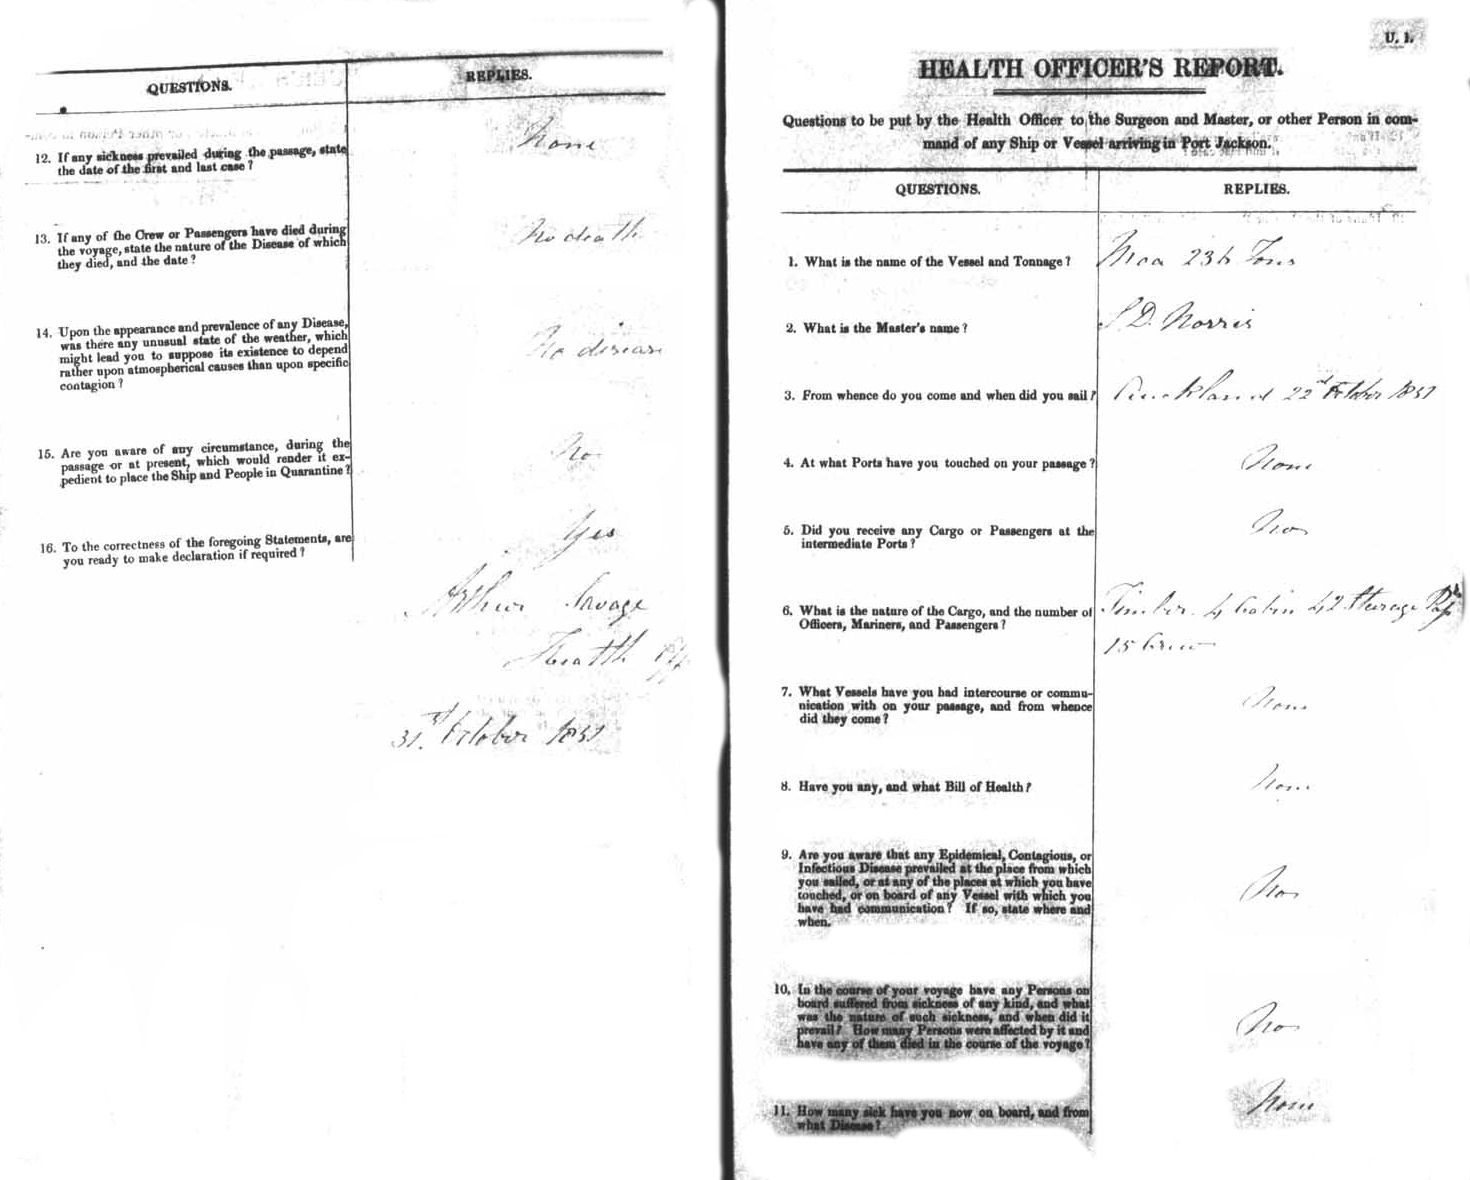 QUESTIONS. REPLIES.
12. If any sickness prevailed during the passage, state
the date of the first and last case?
None
13. If any of the Crew or Passengers have died during
the voyage, state the nature of the Disease of which
they died, and the date?
No death
14. Upon the appearance and prevalence of any Disease,
was there any unusual state of the weather, which
might lead you to suppose its existence to depend
rather upon atmospherical causes than upon specific
contagion?
No disease
15. Are you aware of any circumstance, during the
passage or at present, which would render it ex-
pedient to place the Ship and People in Quarantine?
No
16. To the correctness of the foregoing Statements, are
you ready to make declaration if required?
Yes
Arthur Savage
Health Off
31st October 1851
U. 1.
HEALTH OFFICER'S REPORT.
Questions to be put by the Health Officer to the Surgeon and Master, or other Person in com-
mand of any Ship or Vessel arriving in Port Jackson.
QUESTIONS. REPLIES.
1. What is the name of the Vessel and Tonnage?
236 Tons
2. What is the Master's name?
Norris
3. From whence do you come and when did you sail?
Auckland 22nd October 1851
4. At what Ports have you touched on your passage?
None
5. Did you receive any Cargo or Passengers at the
intermediate Ports?
No
6. What is the nature of the Cargo, and the number of
Officers, Mariners, and Passengers?
Timber. 4 Cabin 42 Sterage
15 Crew
7. What Vessels have you had intercourse or commu-
nication with on your passage, and from whence
did they come?
None
8. Have you any, and what Bill of Health?
None
9. Are you aware that any Epidemical, Contagious, or
Infectious Disease prevailed at the place from which
you sailed, or at any of the places at which you have
touched, or on board of any Vessel with which you
have had communication? If so, state where and
when.
No
10, In the course of your voyage have any Persons on
board suffered from sickness of any kind, and what
was the nature of such sickness, and when did it
prevail? How many Persons were affected by it and
have any of them died in the course of the voyage?
No
11. How many sick have you now on board, and from
what Disease?
None